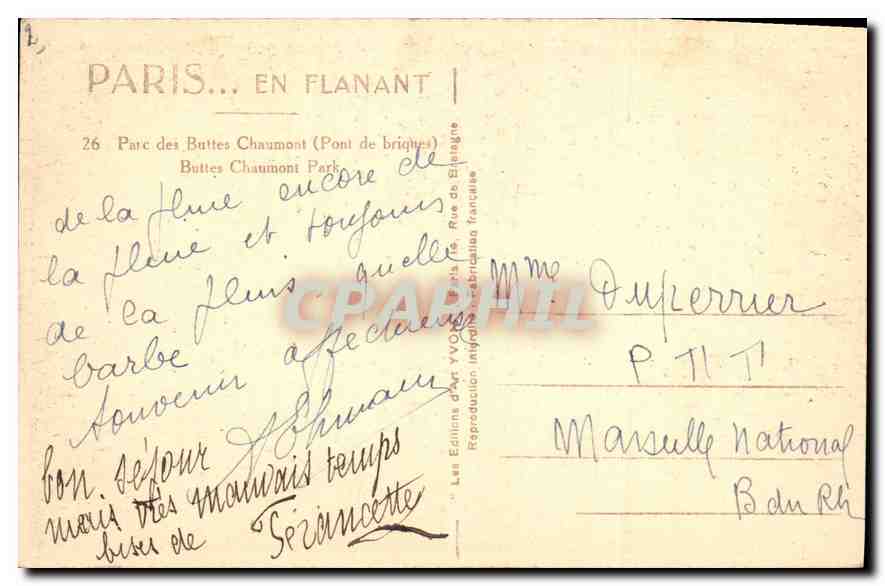 PARIS... EN FLANANT
26 Parc des Buttes Chaumont (Pont de briques)
Buttes Chaumont Park
de la pluie encore de
la pluie et toujours
de la pluie quelle
barbe
Souvenir affectueux
bon séjour
mais très mauvais temps
bises de
" Les Editions d'Art YVON Paris 15, Rue de Bretagne
Reproduction interdite Fabrication française
CPAPHIL
Mme Duperrier
P T T
Marseille National
B du Rh